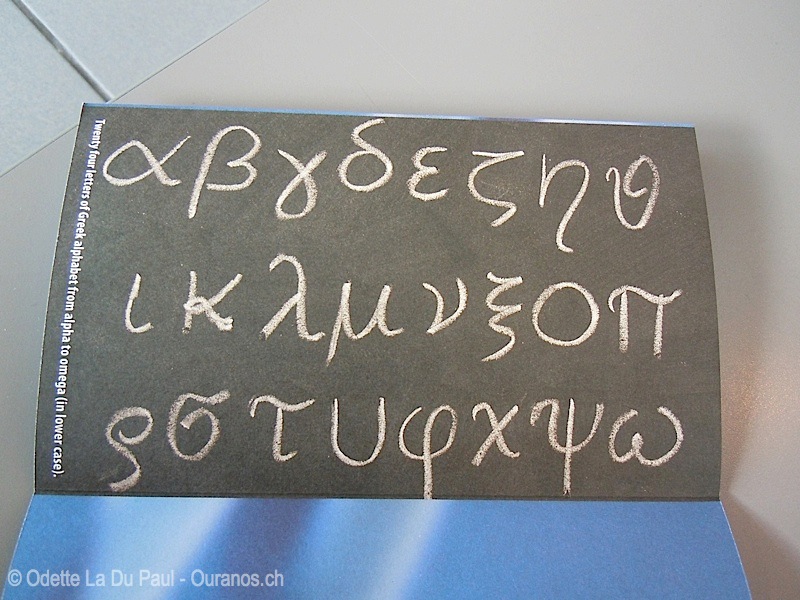 Twenty four letters of Greek alphabet from alpha to omega (in lower case).
α β γ δ ε ζ η θ
ι κ λ μ ν ξ ο π
ρ σ τ υ φ χ ψ ω
© Odette La Du Paul - Ouranos.ch